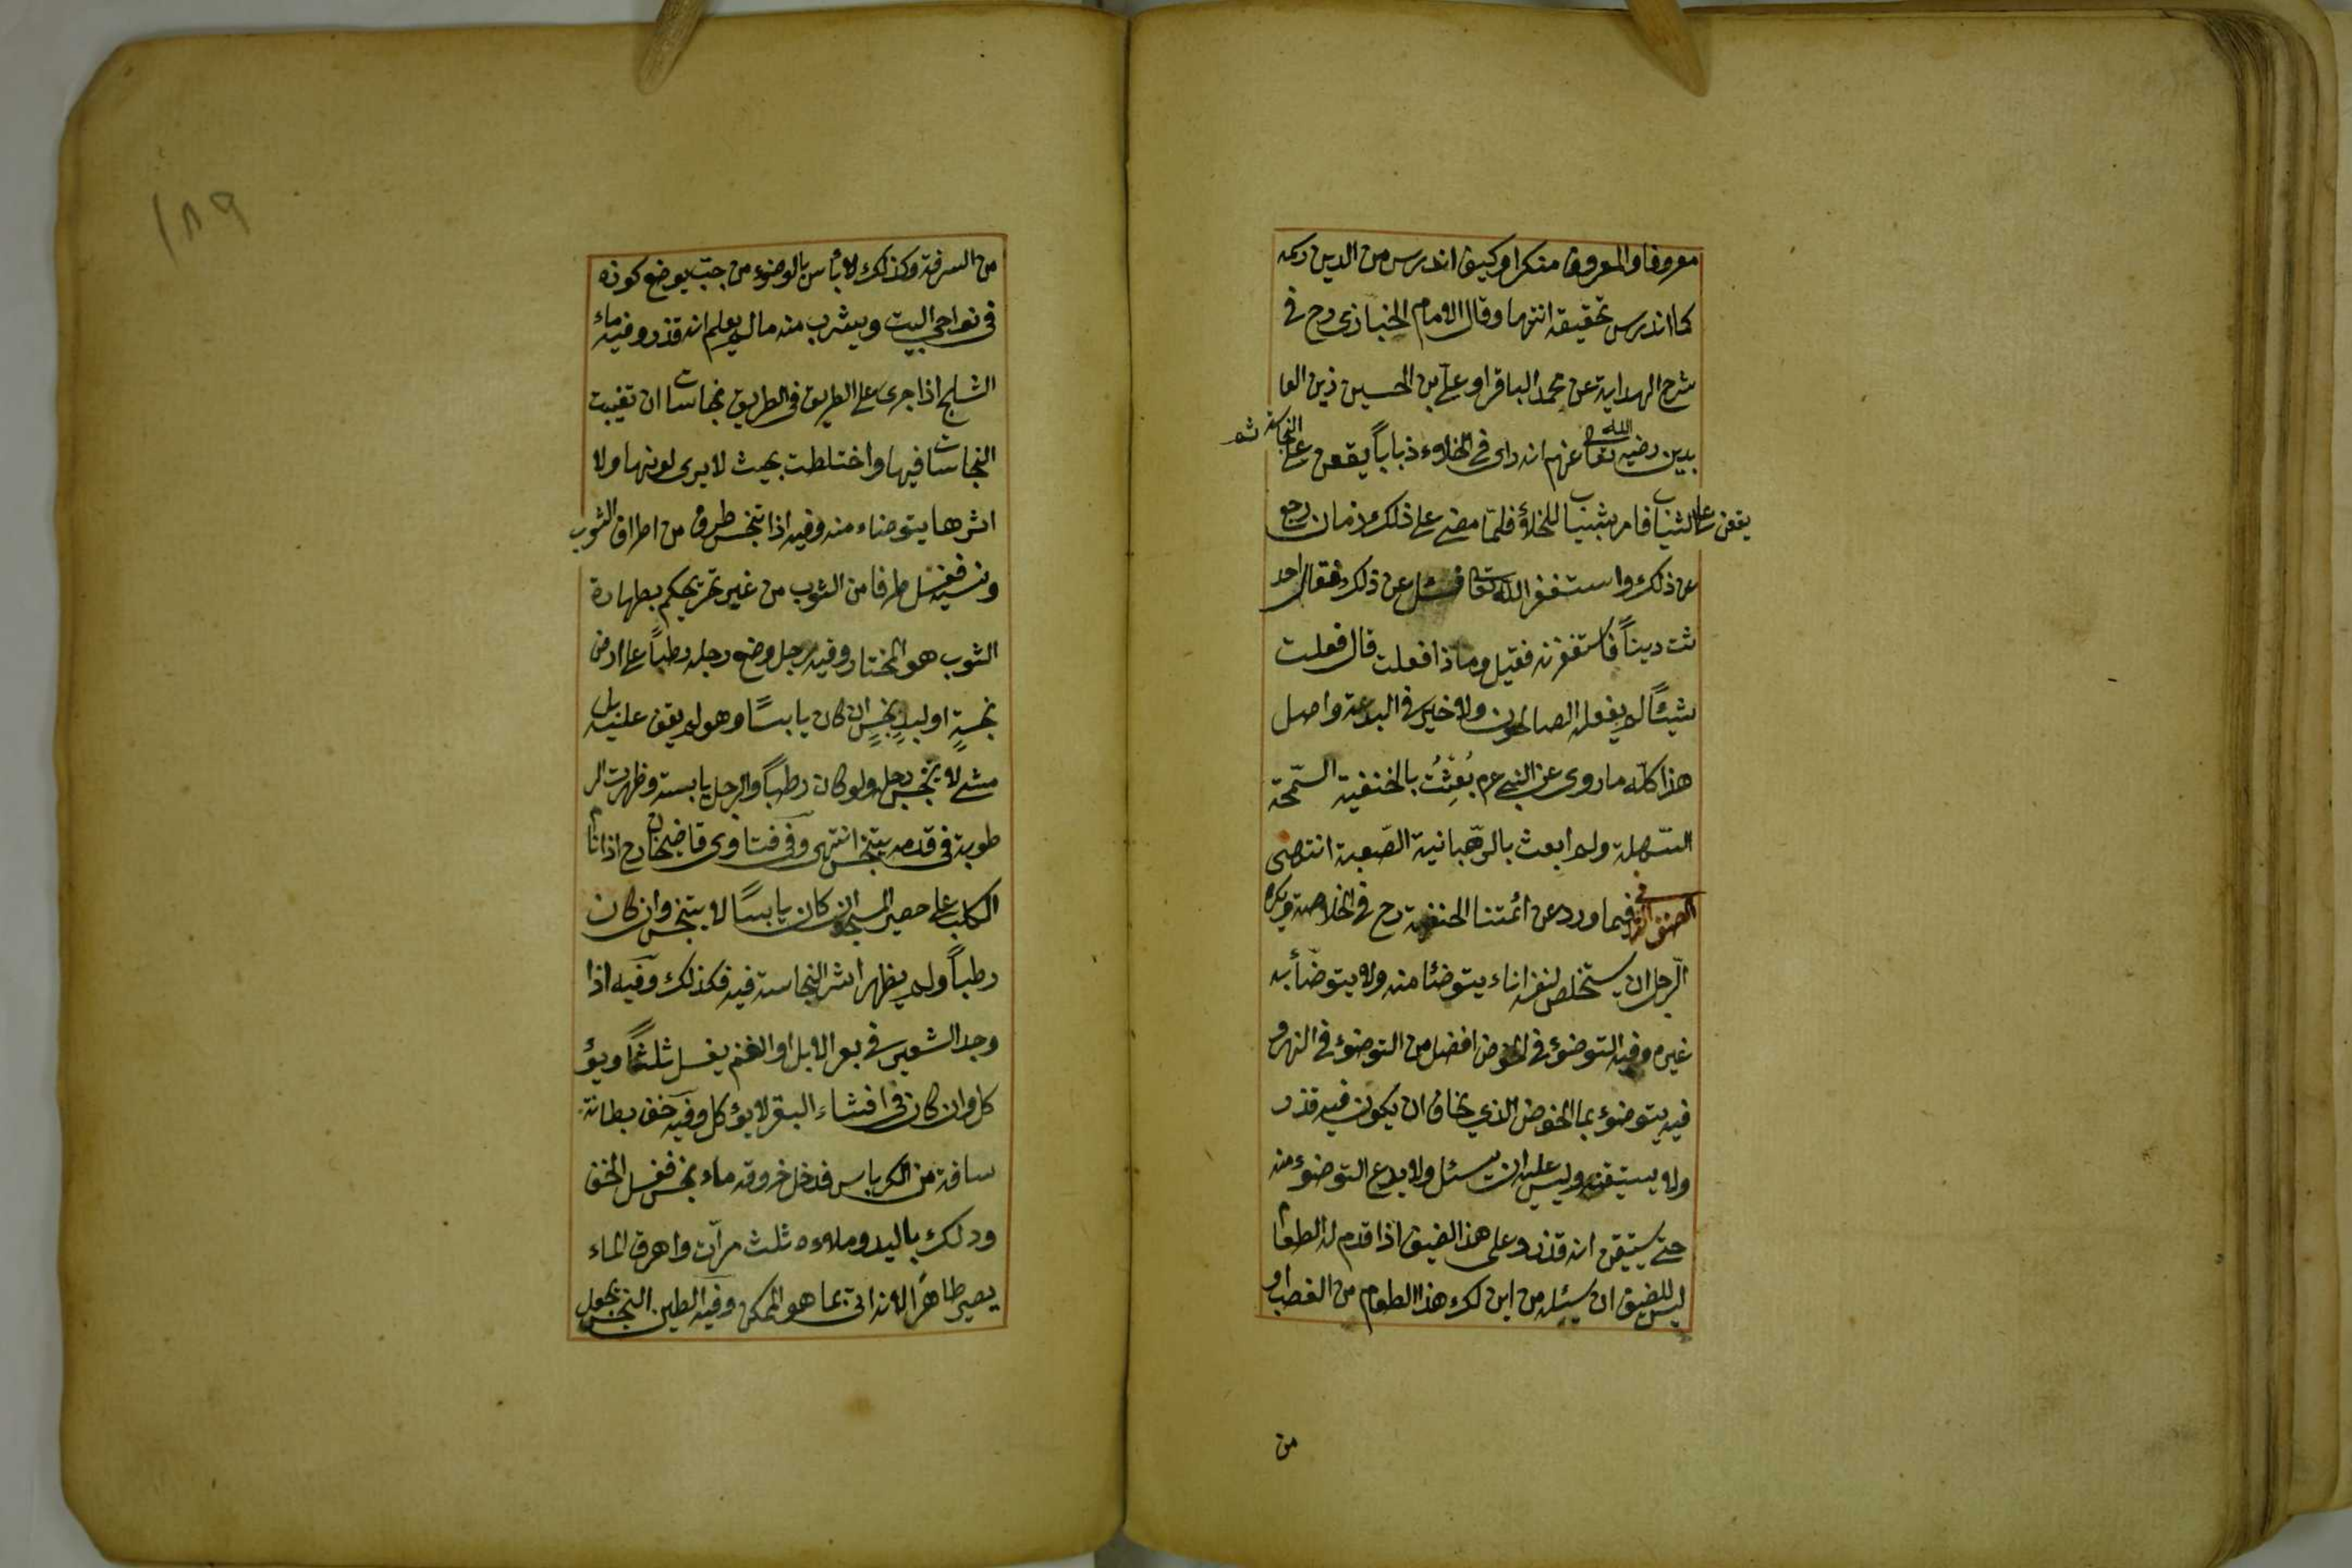 معروفا والمعروف منكرا وكيف اندرس من الدين ركنه
كما اندرس تحقيقه انتهى وقال الامام الخبازى رح فى
شرح الهداية عن محمد الباقر او على بن الحسين زين العا
بدين رضى الله تعا عنهم انه راى فى الخلاء ذبابا يقعن على النجاسة ثم
يقعن على الثياب فامر بثياب للخلاء فلمّا مضى على ذلك زمان رجع
عن ذلك واستغفر الله تعا فسئل عن ذلك فقال احد
ثت ديناً فاستغفرته فقيل وماذا فعلت قال فعلت
شيئاً لم يفعله الصالحون ولا خير فى البدعة واصل
هذا كلّه ما روى عن النبى عم بُعِثْتُ بالحنفية السّمحة
السّهلة ولم ابعث بالرّهبانية الصّعبة انتهى
الصنف فيما ورد عن ائمتنا الحنفية رح فى الخلاصة ويكره
الرّجل ان يستخلص لنفسه اناء يتوضئا منه ولا يتوضّأ به
غيره وفيه التوضوء فى الحوض افضل من التوضوء فى النهر و
فيه يتوضوء بماالحوض الذي يخاف ان يكون فيه قذر
ولا يستيقنه وليس عليه ان يسئل ولا يدع التوضوء منه
حتى يستيقن انه قذر وعلى هذا الضيف اذا قدم له الطعام
ليس للضيف ان يسئله من اين لك هذا الطعام من الغصب او
من
١٨٩
من السرقة وكذلك لا بأس بالوضوء من جبّ يوضع كوزه
فى نواحى البيت ويشرب منه مالم يعلم انه قذر وفيه ماء
الثلج اذا جرى على الطريق فى الطريق نجاسات ان تغيبت
النجاسات فيها واختلطت بحيث لا يرى لونها ولا
اثرها يتوضاء منه وفيه اذا تنجس طرف من اطراف الثوب
ونسيه فغسل طرفا من الثوب من غير تحر يحكم بطهارة
الثوب هو المختار وفيه رجل وضع رجله رطباً على ارض
نجسةٍ او لبدٍ نجسٍ ان كان يابسًا وهو لم يقف عليه بل
مشى لا يتنجس رجله ولو كان رطباً والرجل يابسة وظهرت الر
طوبة فى قدمه يتنجس انتهى وفى فتاوى قاضيخان رح اذا نام
الكلب على حصير المسجد ان كان يابسًا لا يتنجس وان كان
رطباً ولم يظهر اثر النجاسة فيه فكذلك وفيه اذا
وجد الشعير فى بعر الابل او الغنم يغسل ثلثًا ويؤ
كل وان كان فى اخثاء البقر لا يؤكل وفيه خف بطانة
ساقه من الكرباس فدخل خروقه ماء نجس فغسل الخف
ودلك باليد وملاءه ثلث مرّات واهرق الماء
يصير طاهرًا لانه اتى بما هو الممكن وفيه الطين النجس يجعل